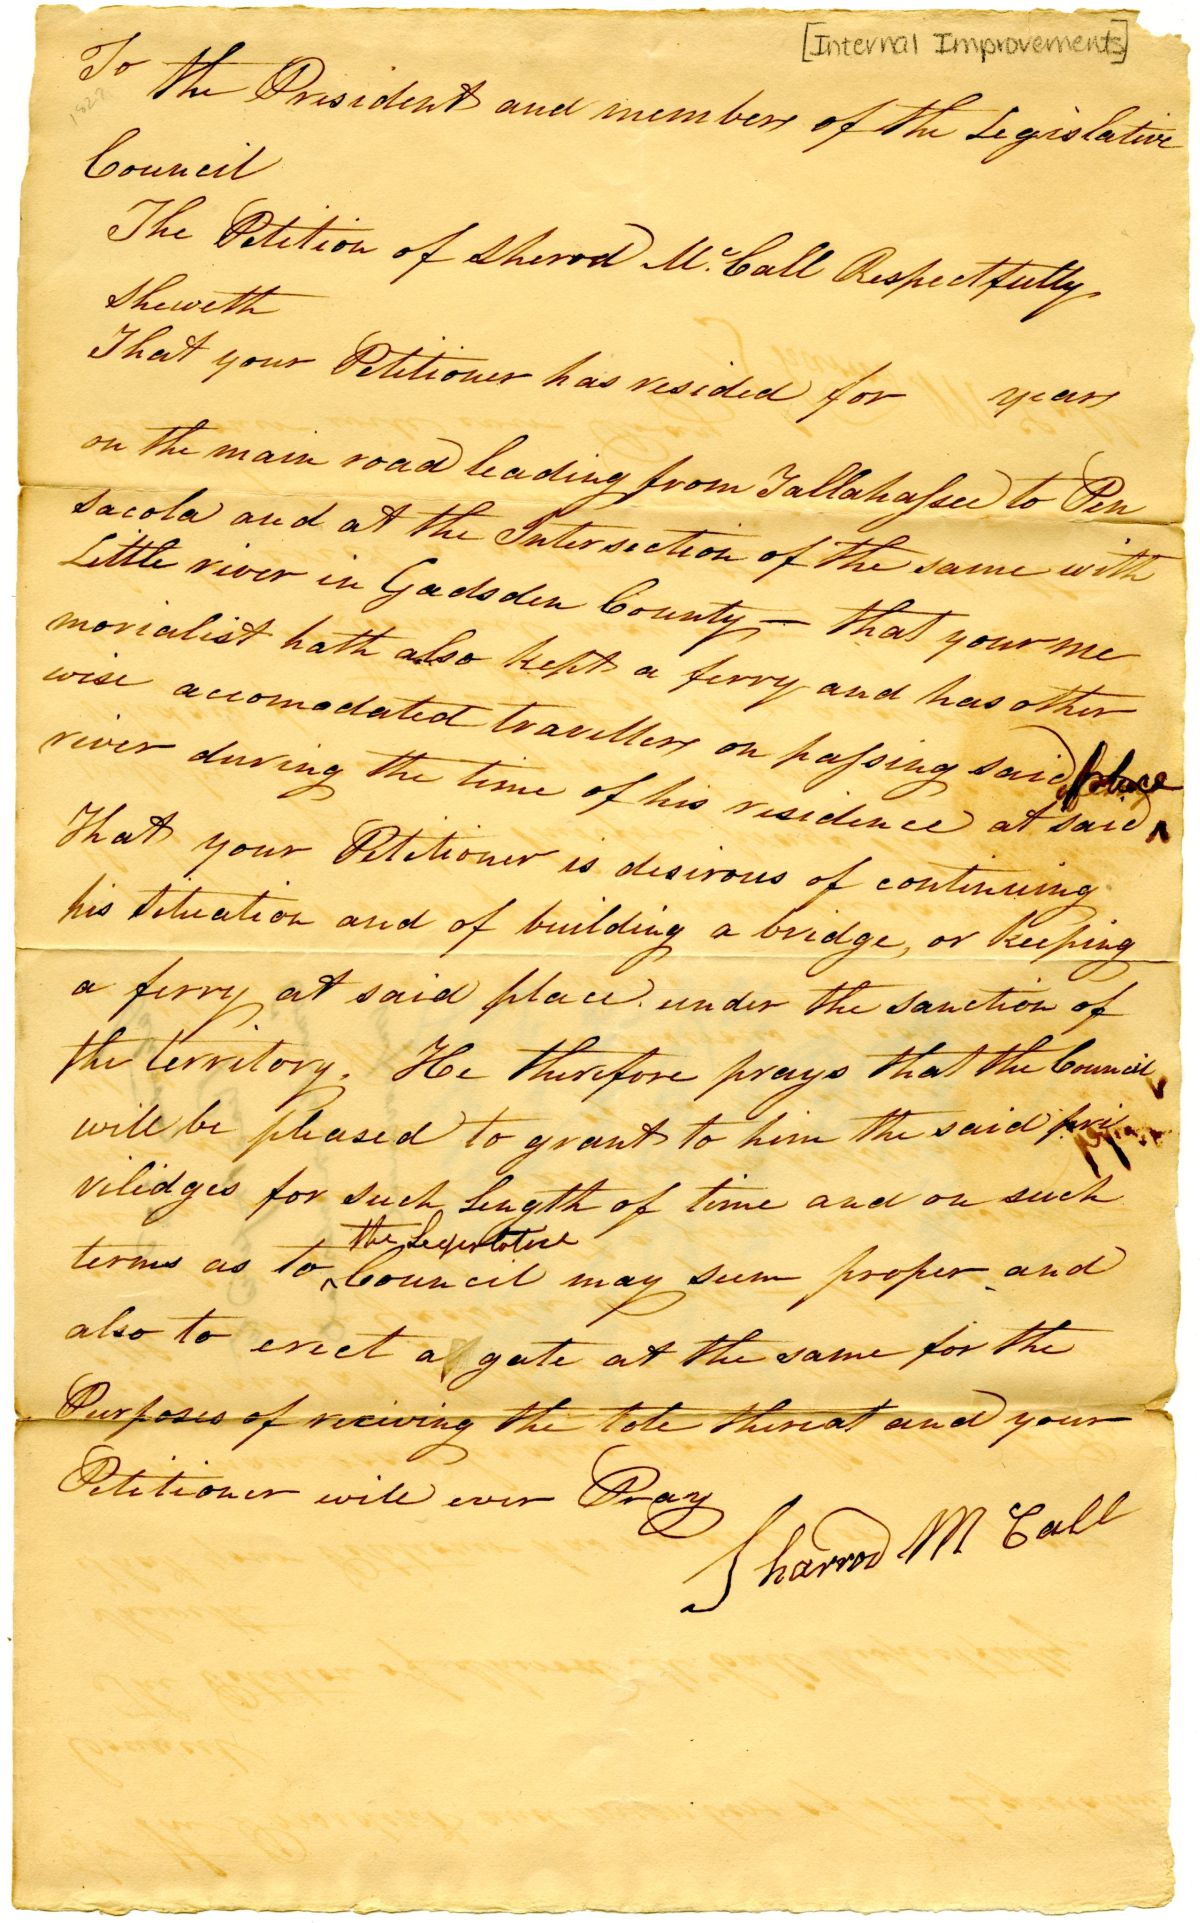 [Internal Improvements]
1827
To
the President and members of the Legislative
Council
The Petition of Sherod Mc.Call Respectfully
Sheweth
That your Petitioner has resided for years
on the main road leading from Tallahassee to Pen
sacola and at the Intersection of the same with
Little river in Gadsden County — that your me
morialist hath also kept a ferry and has other
wise accomodated travellers on passing said
river during the time of his residence at said ^ place
That your Petitioner is desirous of continuing
his situation and of building a bridge, or keeping
a ferry at said place. under the sanction of
the territory. He therefore prays that the Council
will be pleased to grant to him the said pri
vilidges for such length of time and on such
terms as to ^ the Legislative Council may seem proper and
also to erect a gate at the same for the
Purposes of reciving the tole thereat and your
Petitioner will ever Pray
Sharrod McCall